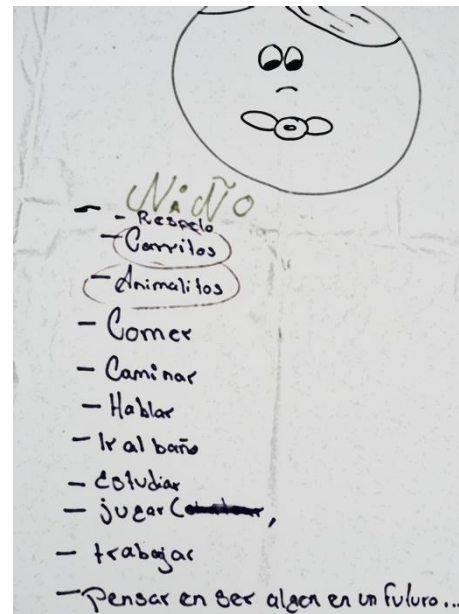 NiÑo
- Respeto
- Carritos
- Animalitos
- Comer
- Caminar
- Hablar
- Ir al baño
- Estudiar
- jugar (
- trabajar
- Pensar en ser algen en un futuro...